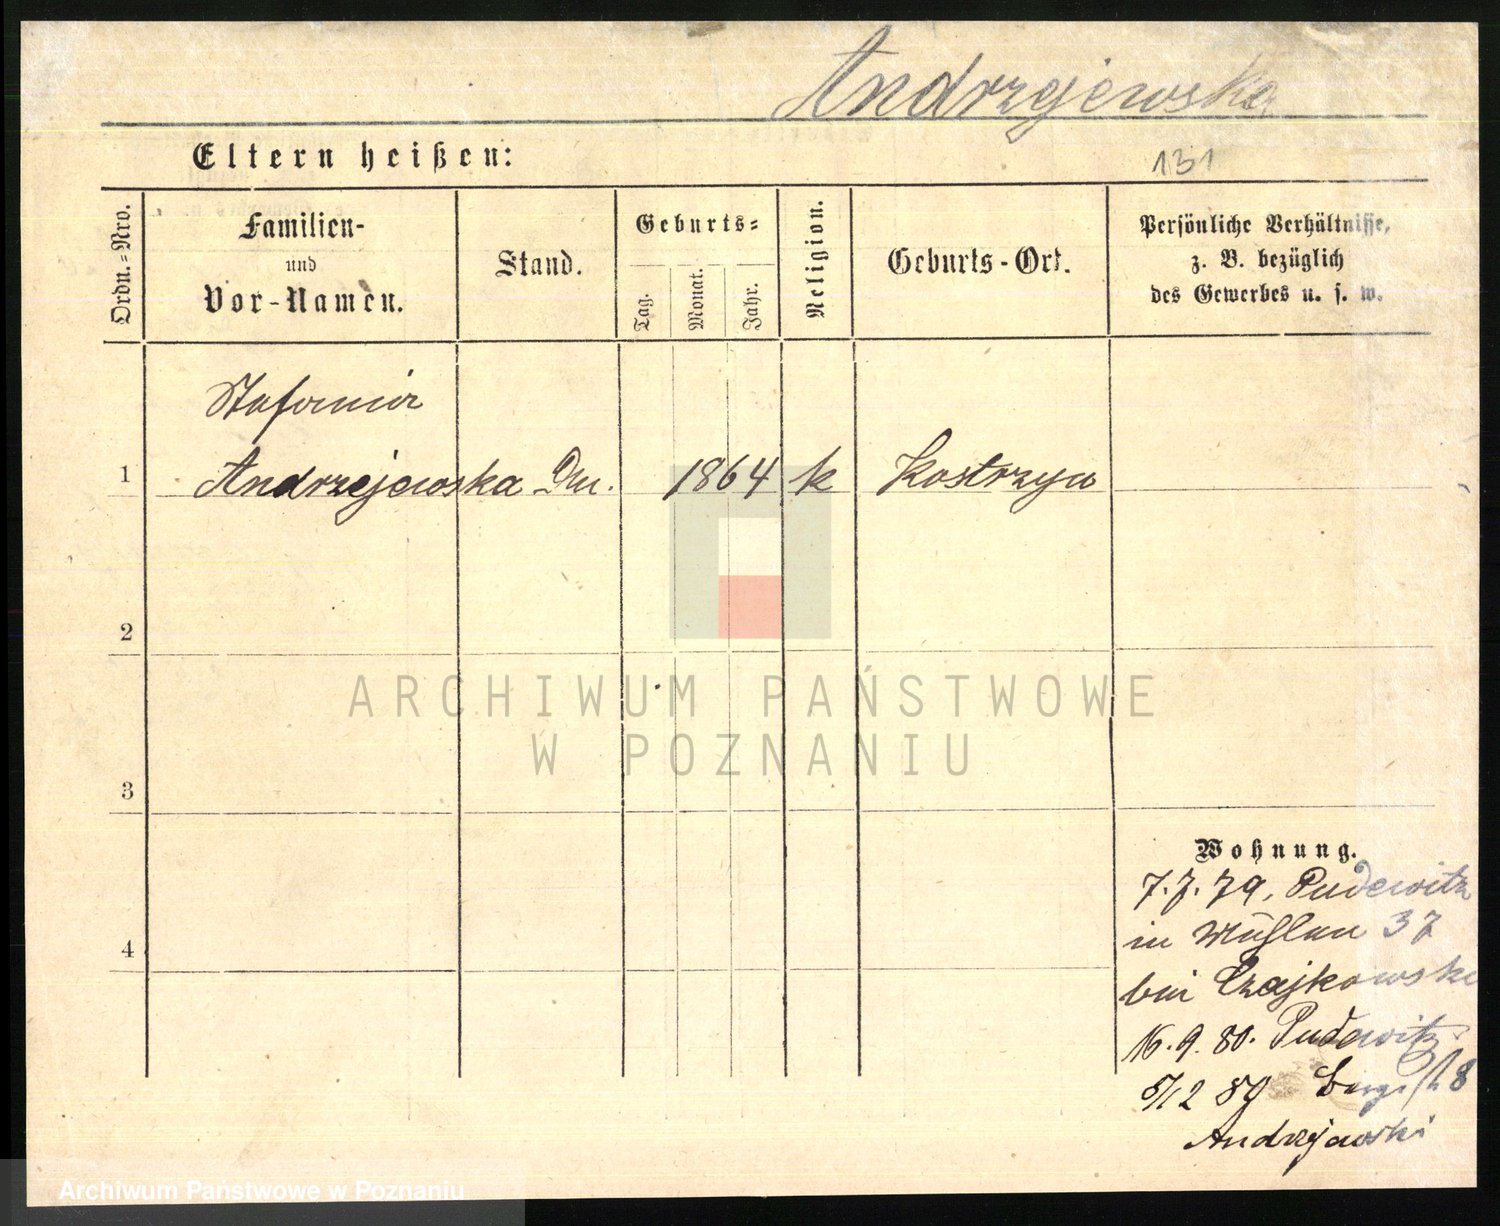 Andrzejewska
Eltern heißen:
131
Ordn.-Nro.
Familien-
und
Vor-Namen.
Stand.
Geburts-
Tag.
Monat.
Jahr.
Religion.
Geburts-Ort.
Persönliche Verhältnisse,
z. B. bezüglich
des Gewerbes u. s. w.
Stefania
1 Andrzejewska 1864 k Kostrzyn
2
3
4
ARCHIWUM PAŃSTWOWE
W POZNANIU
Wohnung.
7.7.79. Pudewitz
in Mühlen 37
bei Czajkowski
16.9.80. Pudewitz
5/12 89 Bergst 8
Andrzejewski
Archiwum Państwowe w Poznaniu